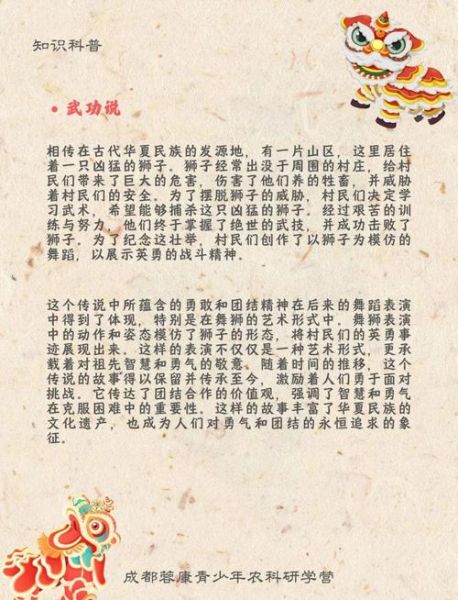 知识科普
• 武功说
相传在古代华夏民族的发源地，有一片山区，这里居住
着一只凶猛的狮子。狮子经常出没于周围的村庄，给村
民们带来了巨大的危害，伤害了他们养的牲畜，并威胁
着村民们的安全。为了摆脱狮子的威胁，村民们决定学
习武术，希望能够捕杀这只凶猛的狮子。经过艰苦的训
练与努力，他们终于掌握了绝世的武技，并成功击败了
狮子。为了纪念这壮举，村民们创作了以狮子为模仿的
舞蹈，以展示英勇的战斗精神。
这个传说中所蕴含的勇敢和团结精神在后来的舞蹈表演
中得到了体现，特别是在舞狮的艺术形式中。舞狮表演
中的动作和姿态模仿了狮子的形态，将村民们的英勇事
迹展现出来。这样的表演不仅仅是一种艺术形式，更承
载着对祖先智慧和勇气的敬意。随着时间的推移，这个
传说的故事得以保留并传承至今，激励着人们勇于面对
挑战。它传达了团结合作的价值观，强调了智慧和勇气
在克服困难中的重要性。这样的故事丰富了华夏民族的
文化遗产，也成为人们对勇气和团结的永恒追求的象
征。
成都蓉康青少年农科研学营